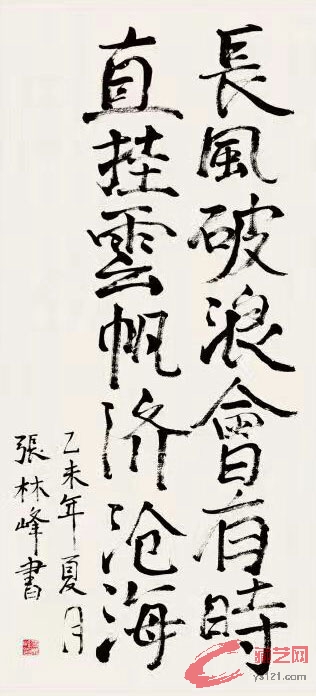 長風破浪會有時
直挂雲帆济沧海
乙未年夏月
張林峰書
艺网
ys121.com